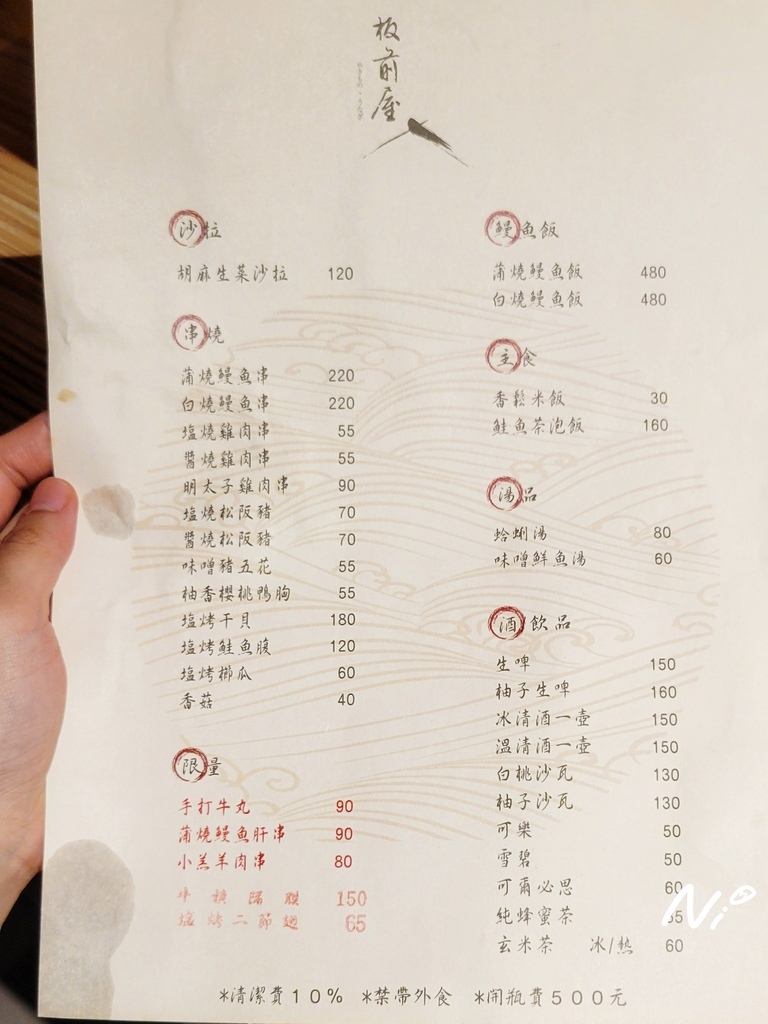 板前屋
沙拉
胡麻生菜沙拉 120
串燒
蒲燒鰻魚串 220
白燒鰻魚串 220
塩燒雞肉串 55
醬燒雞肉串 55
明太子雞肉串 90
塩燒松阪豬 70
醬燒松阪豬 70
味噌豬五花 55
柚香櫻桃鴨胸 55
塩烤干貝 180
塩烤鮭魚腹 120
塩烤櫛瓜 60
香菇 40
限量
手打牛丸 90
蒲燒鰻魚肝串 90
小羔羊肉串 80
150
塩烤二節翅 65
鰻魚飯
蒲燒鰻魚飯 480
白燒鰻魚飯 480
主食
香鬆米飯 30
鮭魚茶泡飯 160
湯品
蛤蜊湯 80
味噌鮮魚湯 60
酒/飲品
生啤 150
柚子生啤 160
冰清酒一壺 150
溫清酒一壺 150
白桃沙瓦 130
柚子沙瓦 130
可樂 50
雪碧 50
可爾必思 60
純蜂蜜茶
玄米茶 冰/熱 60
*清潔費10% *禁帶外食 *開瓶費500元
Ni